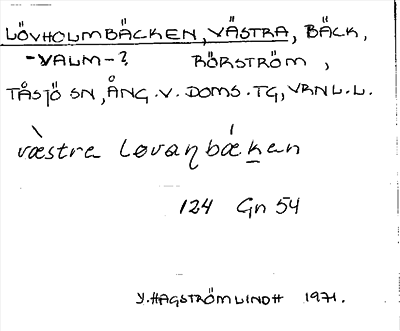 LÖVHOLMBÄCKEN, VÄSTRA, BÄCK,
-VALM-? RÖRSTRÖM,
TÅSJÖ SN, ÅNG. V. DOMS. TG, VRNL.L.
væ̀stre Løvaŋbǽken
124 Gn 54
Y. HAGSTRÖM LINDH 1971.